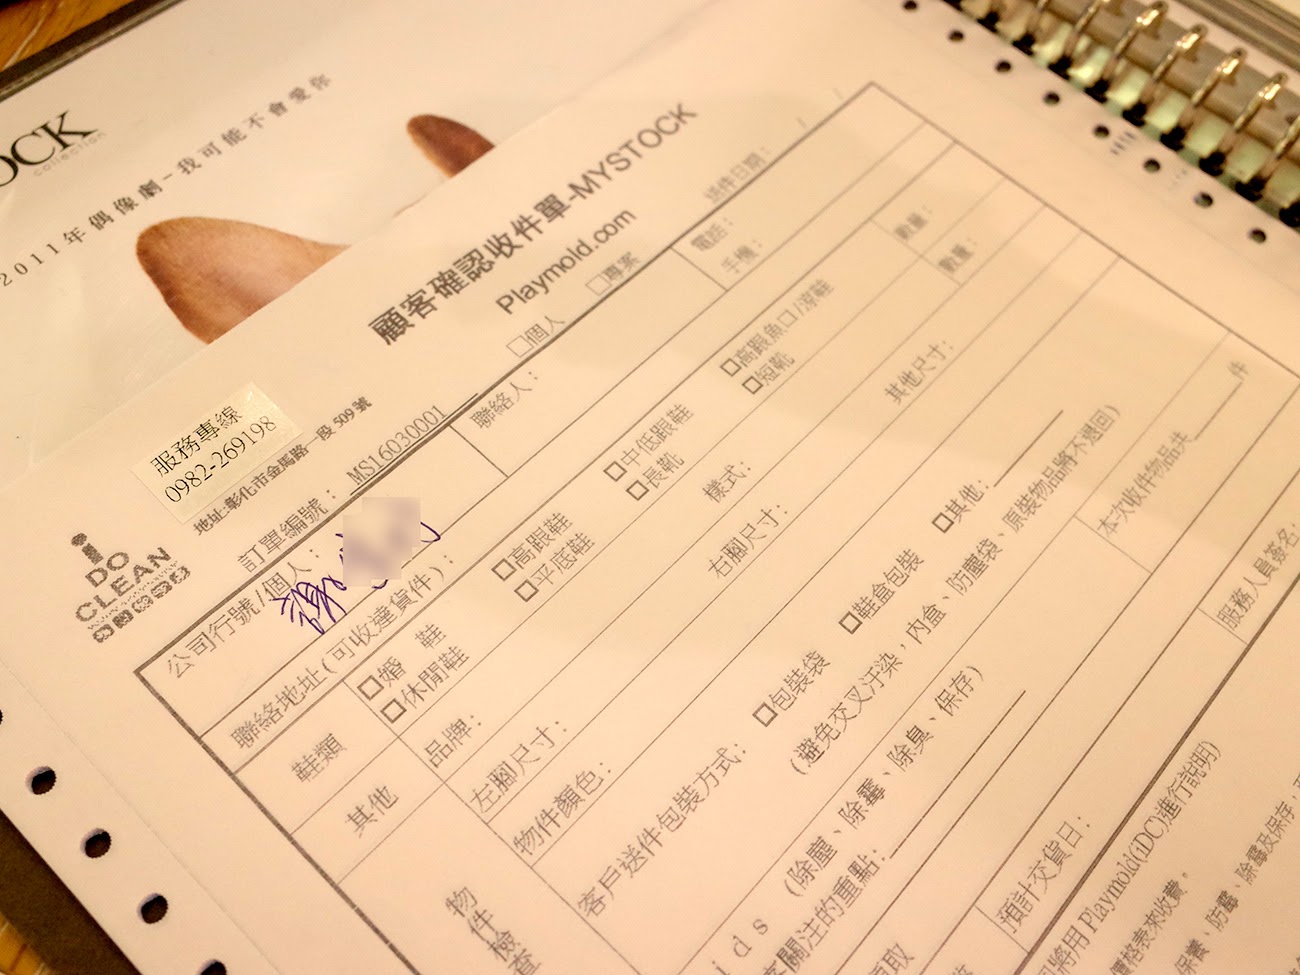 OCK
collection
2011年偶像劇-我可能不會愛你
顧客確認收件單-MYSTOCK
Playmold.com
□個人 □專案
送件日期：
服務專線
0982-269198
地址:彰化市金馬路一段 509 號
i
DO
CLEAN
訂單編號： MS16030001
公司行號/個人：
聯絡人：
電話：
手機：
聯絡地址(可收達貨件)：
鞋類
□婚 鞋 □高跟鞋 □中低跟鞋 □高跟魚口/涼鞋 數量：
□休閒鞋 □平底鞋 □長靴 □短靴 數量：
其他
品牌： 樣式： 其他尺寸：
左腳尺寸： 右腳尺寸：
物件檢查
物件顏色：
客戶送件包裝方式： □包裝袋 □鞋盒包裝 □其他：
(避免交叉汙染，內盒、防塵袋、原裝物品將不退回)
本次收件物品共 件
ids (除塵、除霉、除臭、保存)
關注的重點：
取
預計交貨日：
服務人員簽名：
將用 Playmold(iDC)進行說明)
價格表來收費，
保養、防霉、除霉及保存，